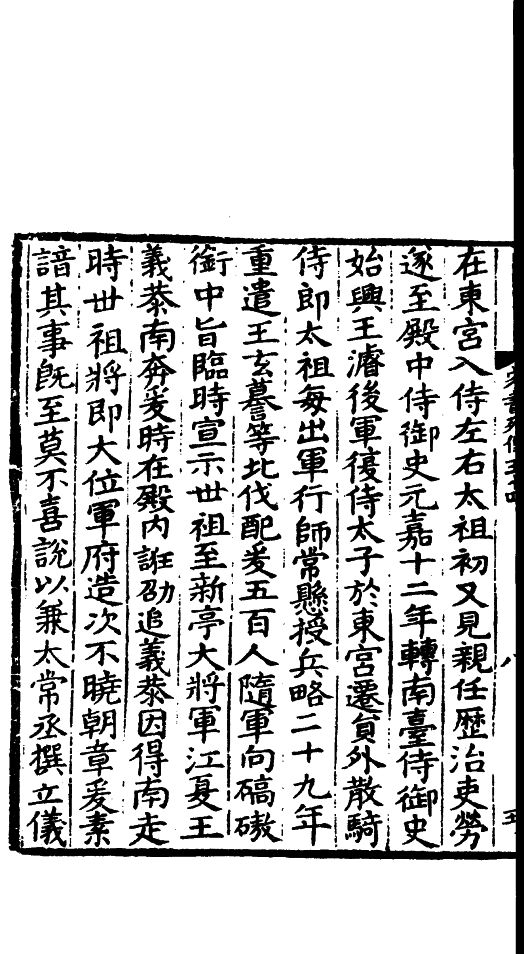 在東宮入侍左右太祖初又見親任歷治吏勞
遂至殿中侍御史元嘉十二年轉南臺侍御史
始興王濬後軍復侍太子於東宮遷貟外散騎
侍郎太祖每出軍行師常懸授兵略二十九年
重遣王玄謩等北伐配爰五百人隨軍向碻磝
銜中旨臨時宣示世祖至新亭大將軍江夏王
義恭南奔爰時在殿内誑劭追義恭因得南走
時世祖將即大位軍府造次不曉朝章爰素
諳其事旣至莫不喜說以兼太常丞撰立儀